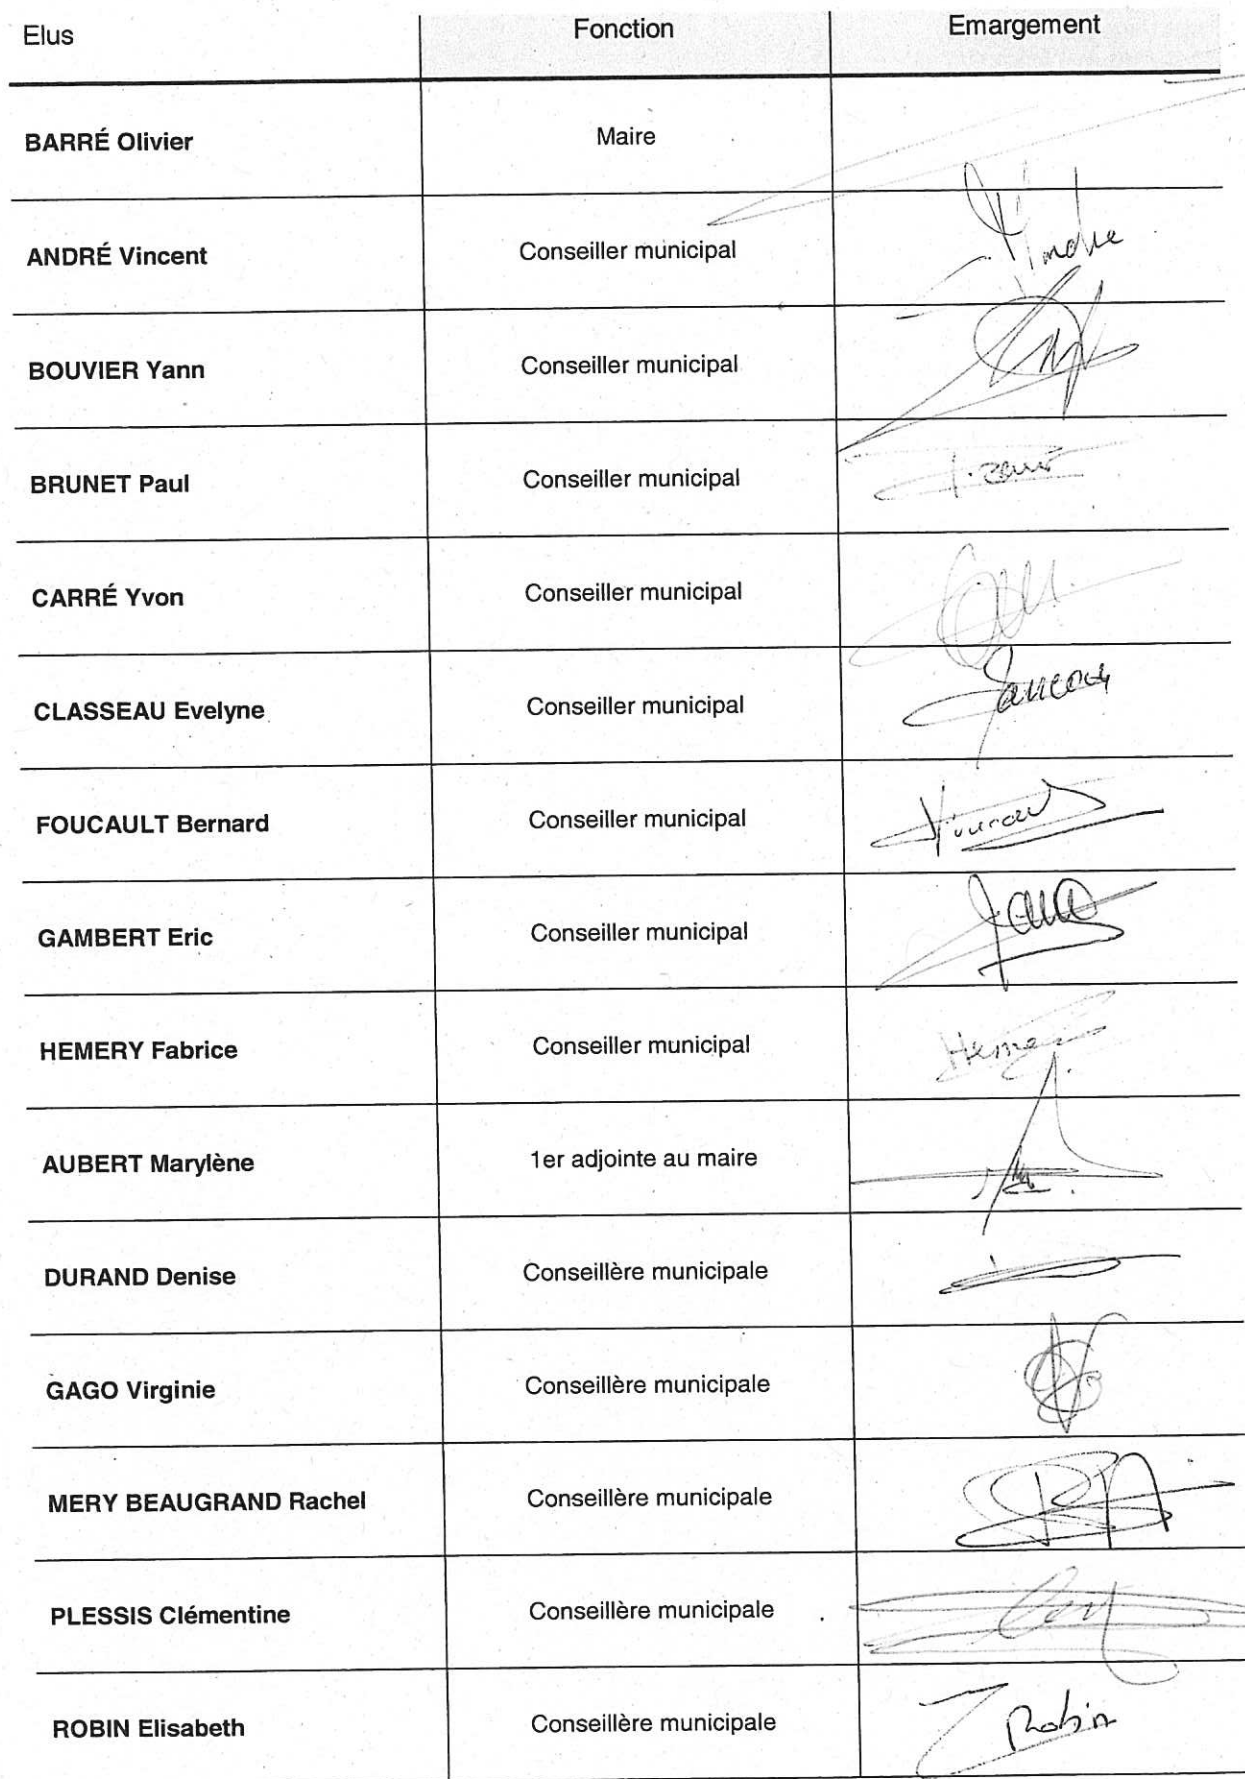 Elus Fonction Emargement
BARRÉ Olivier Maire
ANDRÉ Vincent Conseiller municipal
BOUVIER Yann Conseiller municipal
BRUNET Paul Conseiller municipal
CARRÉ Yvon Conseiller municipal
CLASSEAU Evelyne Conseiller municipal
FOUCAULT Bernard Conseiller municipal
GAMBERT Eric Conseiller municipal
HEMERY Fabrice Conseiller municipal
AUBERT Marylène 1er adjointe au maire
DURAND Denise Conseillère municipale
GAGO Virginie Conseillère municipale
MERY BEAUGRAND Rachel Conseillère municipale
PLESSIS Clémentine Conseillère municipale
ROBIN Elisabeth Conseillère municipale Robin